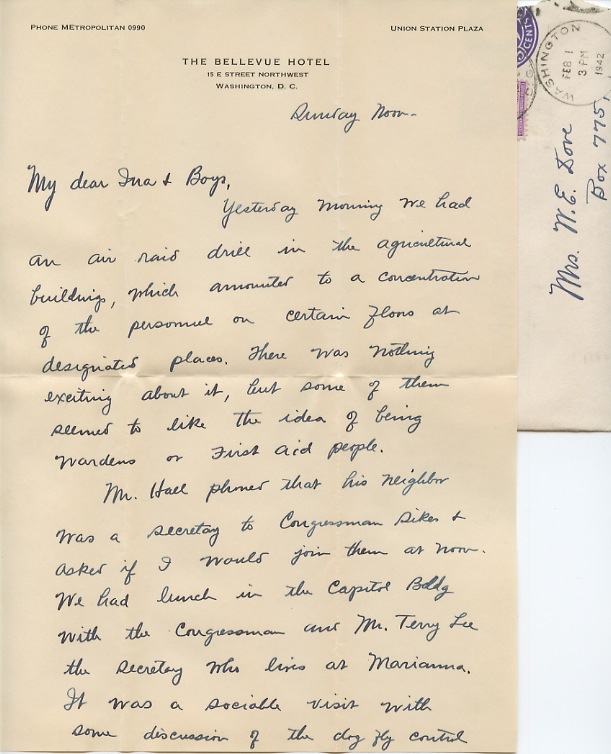 PHONE METROPOLITAN 0990
UNION STATION PLAZA
THE BELLEVUE HOTEL
15 E STREET NORTHWEST
WASHINGTON, D. C.
Sunday Noon-
My dear Ina & Boys,
Yesterday morning we had
an air raid drill in the agricultural
buildings, which amounted to a concentration
of the personnel on certain floors at
designated places. There was nothing
exciting about it, but some of them
seemed to like the idea of being
wardens or First Aid people.
Mr. Hall phoned that his neighbor
was a secretary to Congressman Sikes &
asked if I would join them at noon.
We had lunch in the Capitol Bldg
with the Congressman and Mr. Terry Lee
the secretary who lives at Marianna.
It was a sociable visit with
some discussion of the dog fly control
CENTS
WASHINGTON
FEB 1
3 PM
1942
Mrs. W. E. Dove
Box 775,